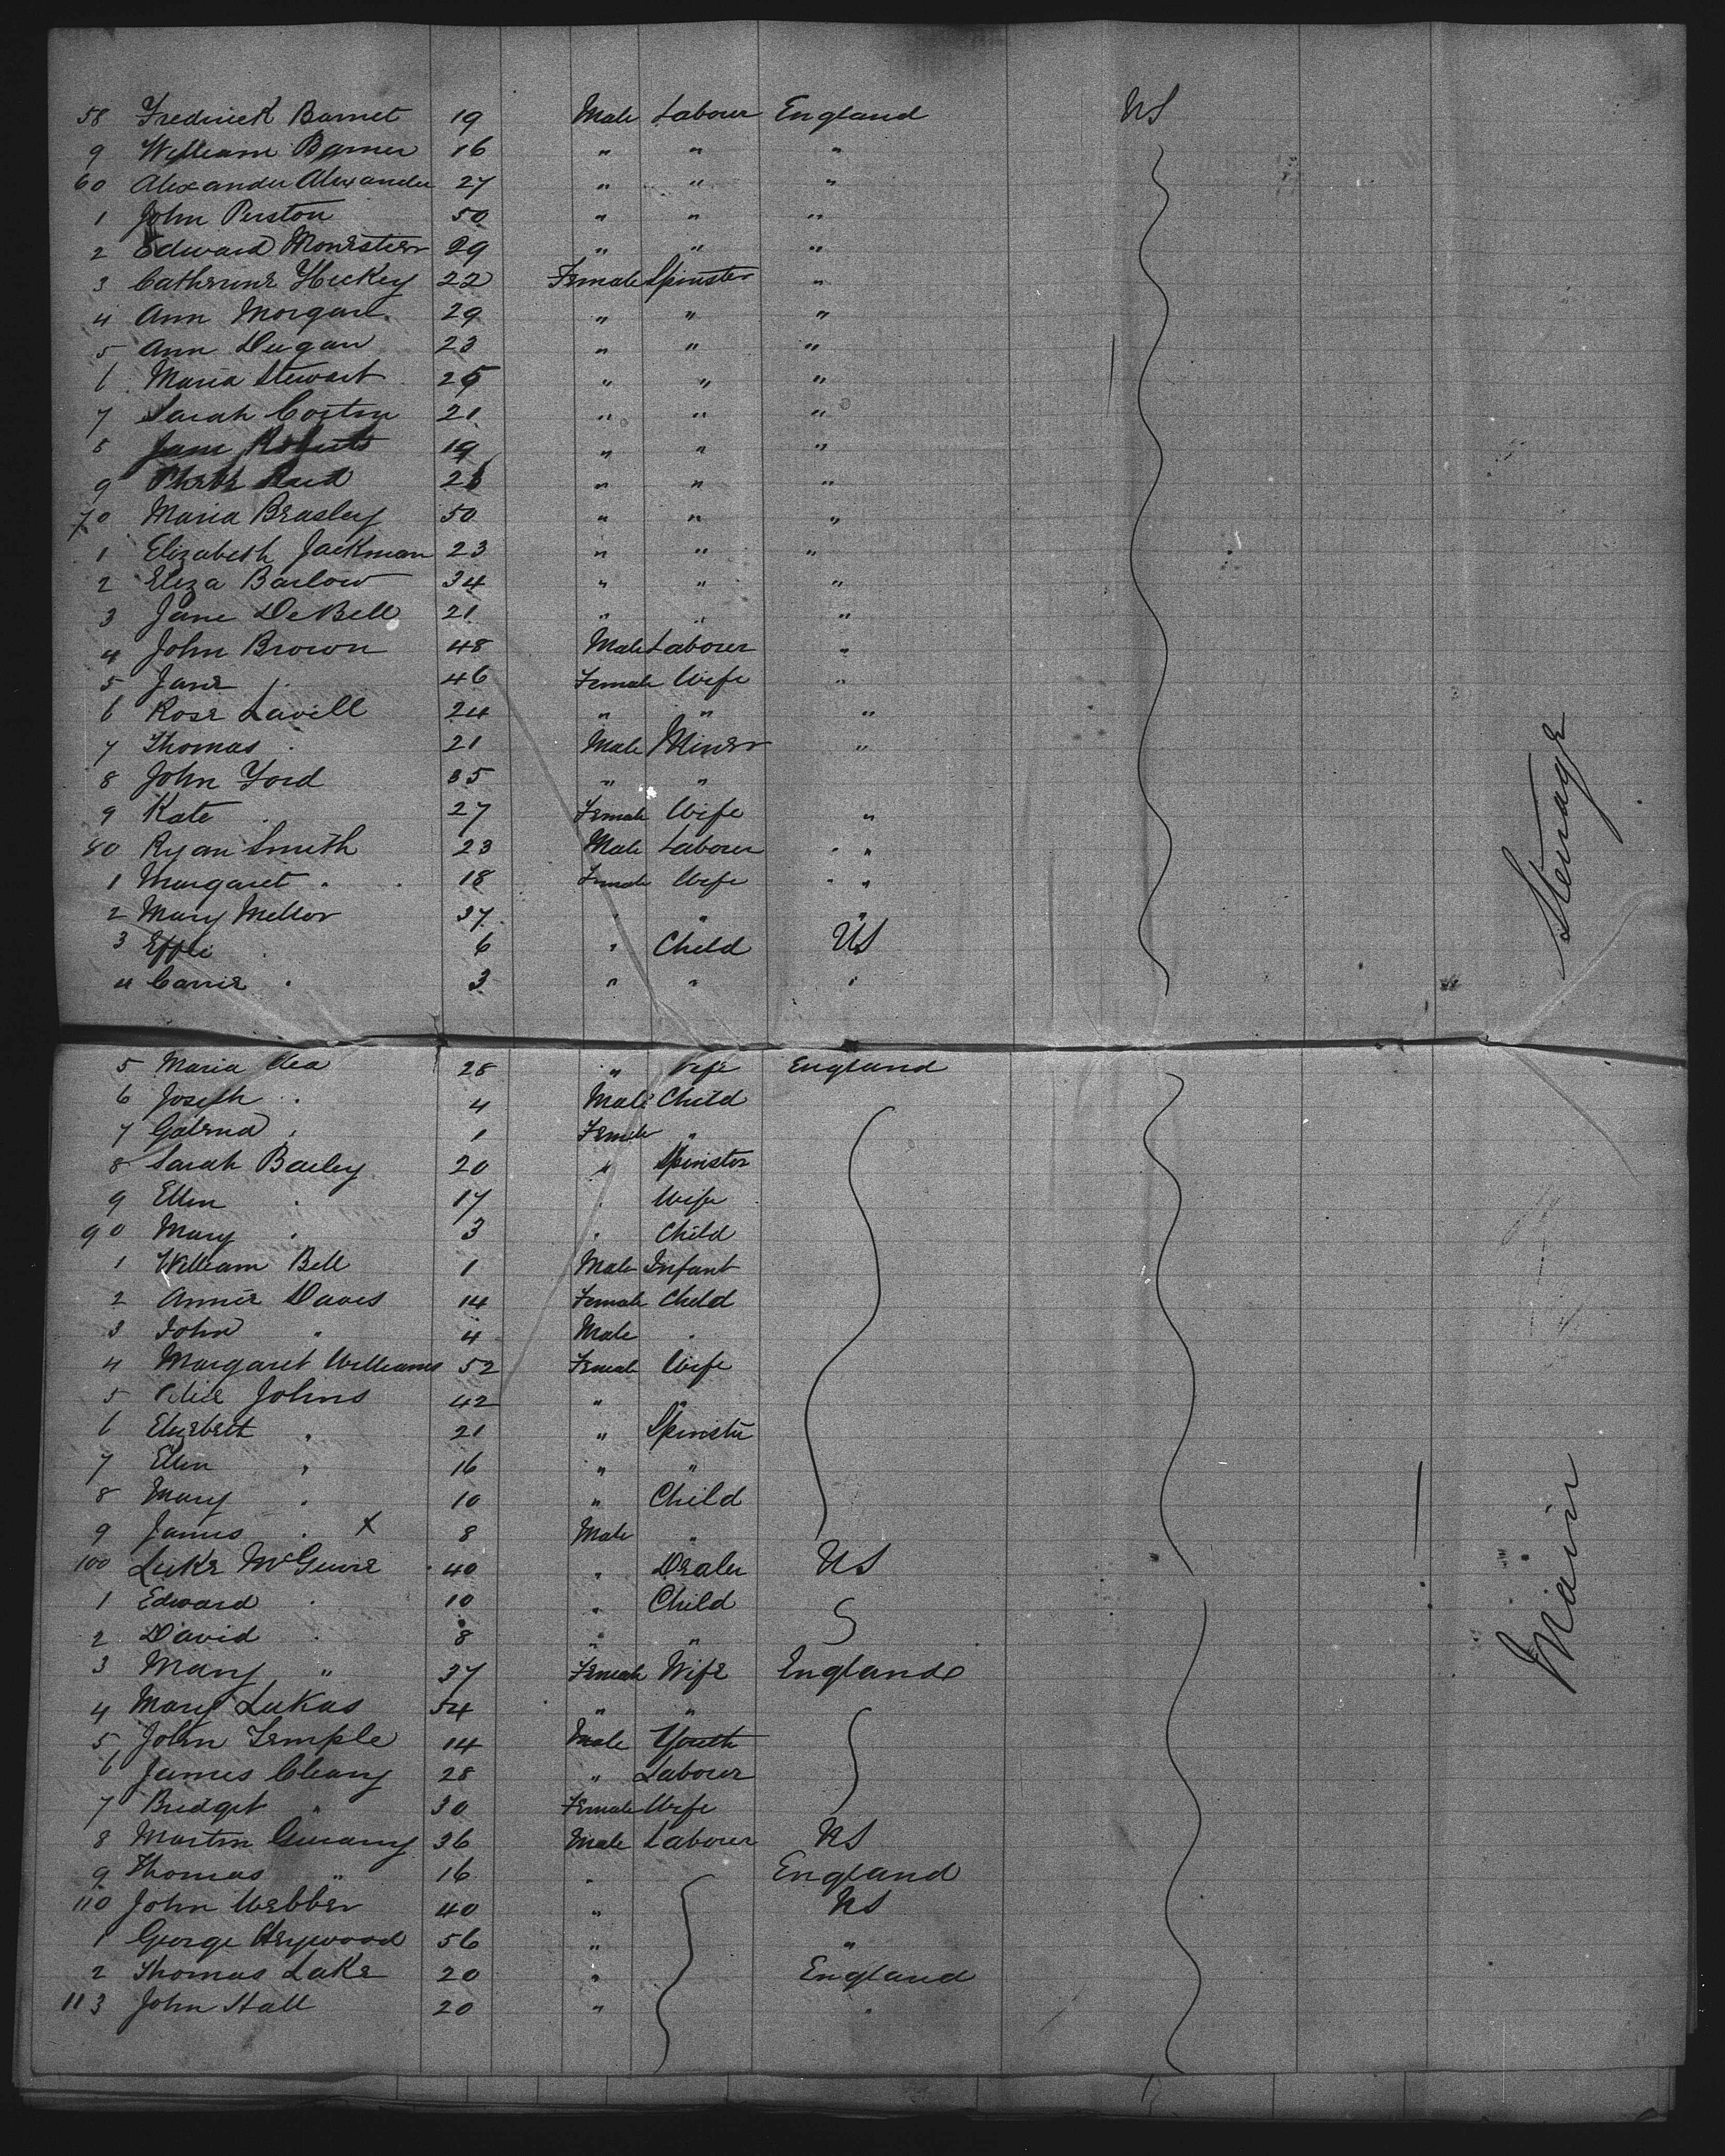 58 Fredrick Barnet 19 Male Labour England US
9 William Barner 16 " " "
60 Alexander Alexander 27 " " "
1 John Perston 50 " " "
2 Edward 29 " " "
3 Catherine Hickey 22 Female Spinster "
4 Ann Morgan 29 " " "
5 Ann Dugan 23 " " "
6 Maria Stewart 25 " " "
7 Sarah Costin 21 " " "
8 Jane Roberts 19 " " "
9 " " "
70 Maria Beasley 50 " " "
1 Elizabeth Jackman 23 " " "
2 Eliza Barlow 34 " " "
3 Jane DeBell 21 " " "
4 John Brown 48 Male Labourer "
5 Jane " 46 Female Wife "
6 Rose Lavill 24 " " "
7 Thomas " 21 Male Miner "
8 John Ford 35 " "
9 Kate " 27 Female Wife "
80 Ryan Smith 23 Male Labourer "
1 Margaret " 18 Female Wife "
2 Mary Mellor 37 " " "
3 Effie " 6 " Child US
4 Carrie " 3 " " "
Steerage
5 Maria 28 " Wife England
6 Joseph " 4 Male Child
7 " 1 Female "
8 Sarah Bailey 20 " Spinster
9 Ellen " 17 " Wife
90 Mary " 3 " Child
1 William Bell 1 Male Infant
2 Annie Daves 14 Female Child
3 John " 4 Male "
4 Margaret Williams 52 Female Wife
5 Johns 42 " "
6 Elizebeth " 21 " Spinster
7 Ellen " 16 " "
8 Mary " 10 " Child
9 James " X 8 Male "
100 Luke McGuire 40 " Dealer US
1 Edward " 10 " Child
2 David " 8 " "
3 Mary " 37 Female Wife England
4 Mary Lukas 54 " "
5 John Temple 14 Male Youth
6 James Cleary 28 " Labourer
7 Bridget " 30 Female Wife
8 Martin 36 Male Labourer US
9 Thomas " 16 " England
110 John Webber 40 " US
1 George Heywood 56 " "
2 Thomas Lake 20 " England
113 John Hall 20 " "
Main